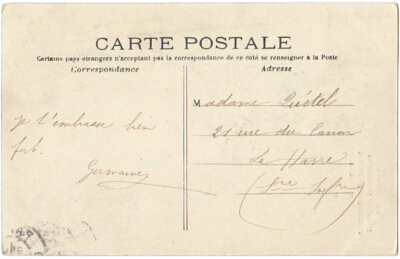 CARTE POSTALE
Certains pays étrangers n'acceptant pas la correspondance de ce coté se renseigner à la Poste
Correspondance
Adresse
je t'embrasse bien
fort.
Germaine
Madame Quétel
21 rue du Canon
Le Havre
(Sre Infre)